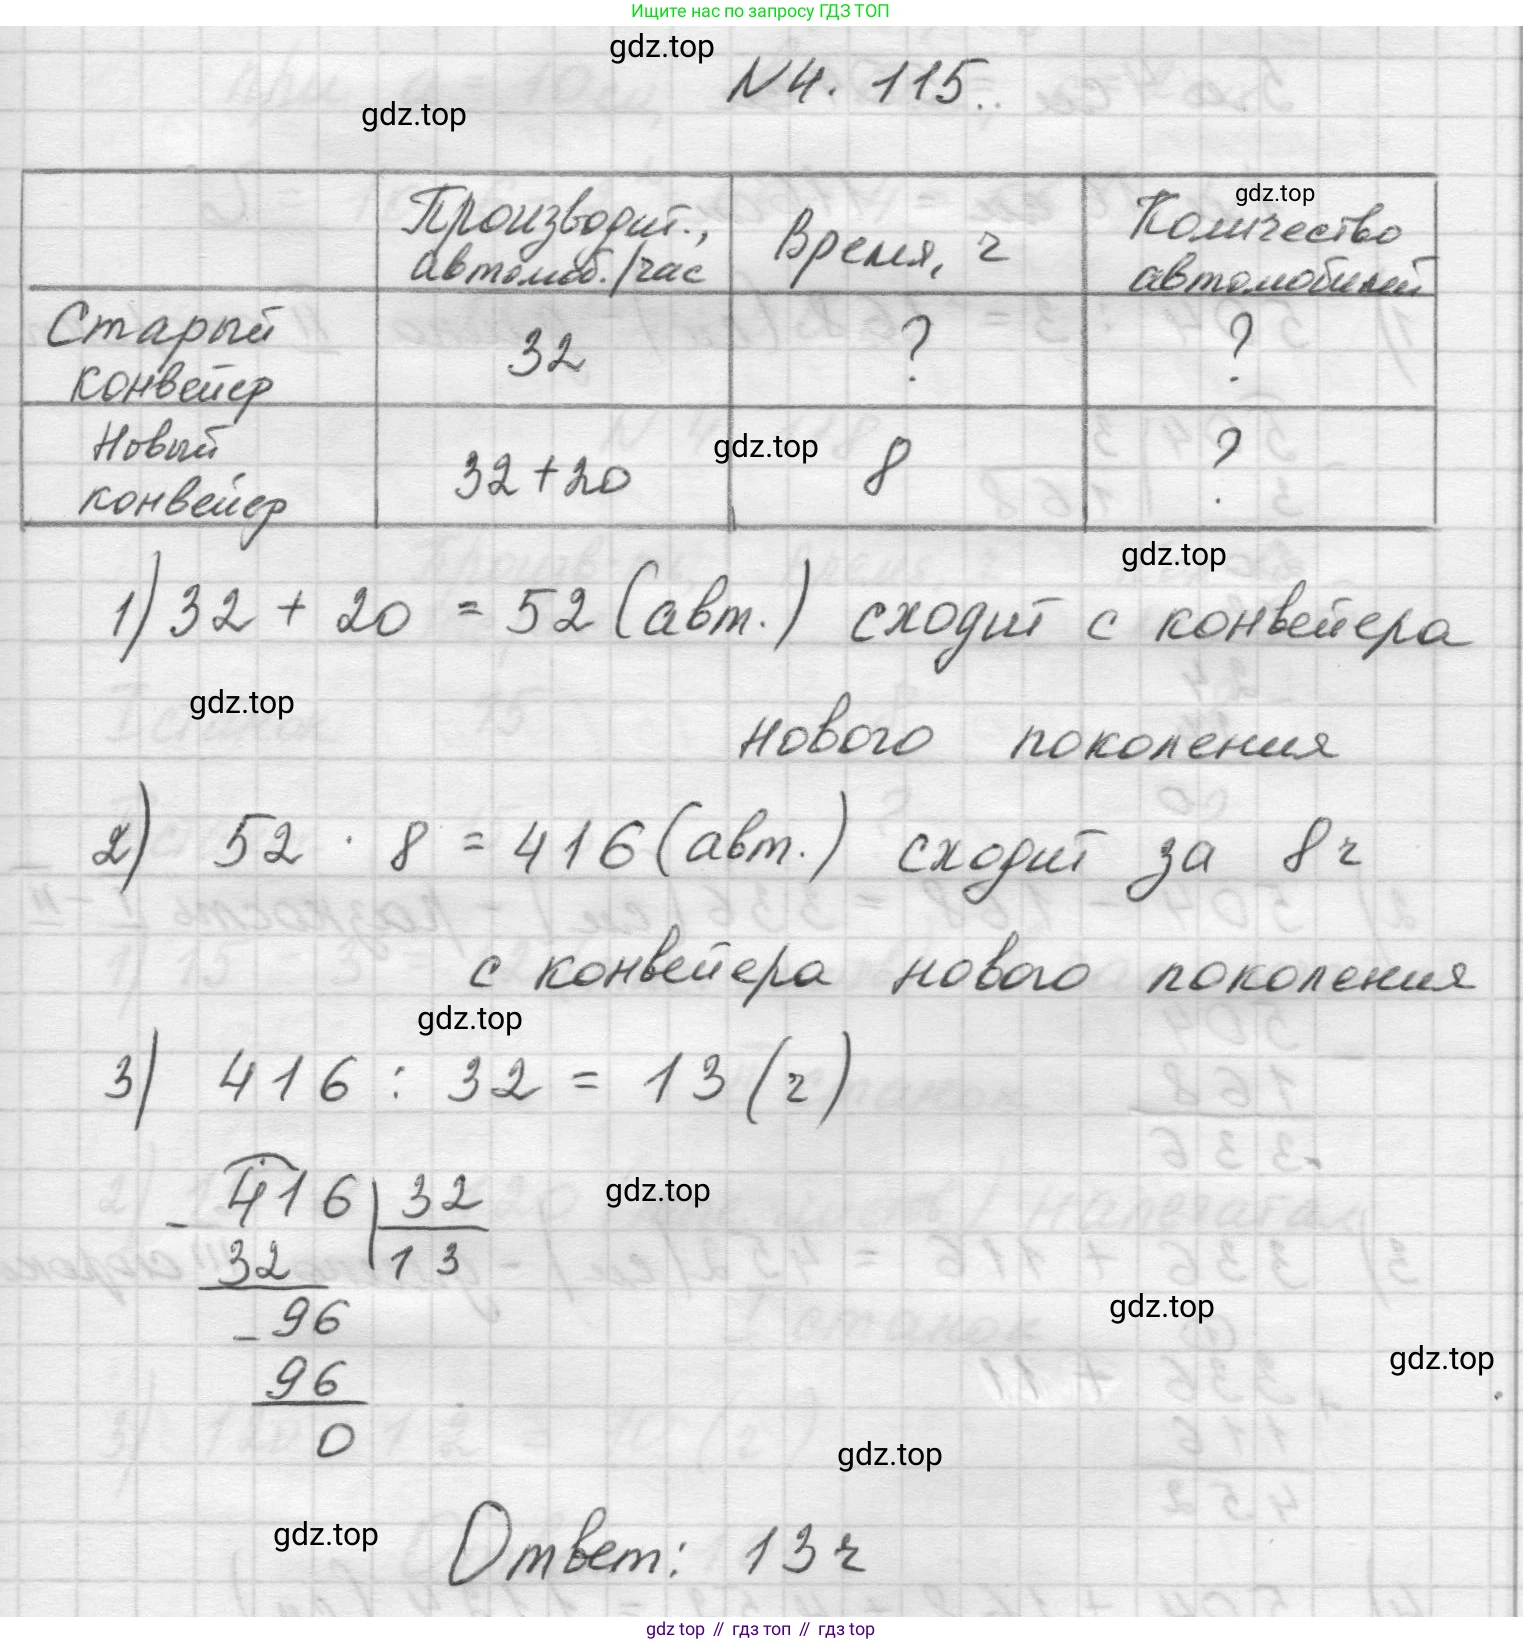 Ищите нас по запросу ГДЗ ТОП
gdz.top
N 4. 115.
gdz.top
Производит., автомоб./час
Время, ч
gdz.top
Количество автомобилей
Старый конвейер
32
?
?
Новый конвейер
32+20
gdz.top
8
?
gdz.top
1) 32 + 20 = 52 (авт.) сходит с конвейера
gdz.top
нового поколения
2) 52 · 8 = 416 (авт.) сходит за 8 ч
с конвейера нового поколения
gdz.top
3) 416 : 32 = 13 (ч)
- 416 32
gdz.top
32 13
- 96
gdz.top
gdz.top
96
0
gdz.top
gdz.top
Ответ: 13 ч
gdz top // гдз топ // gdz top